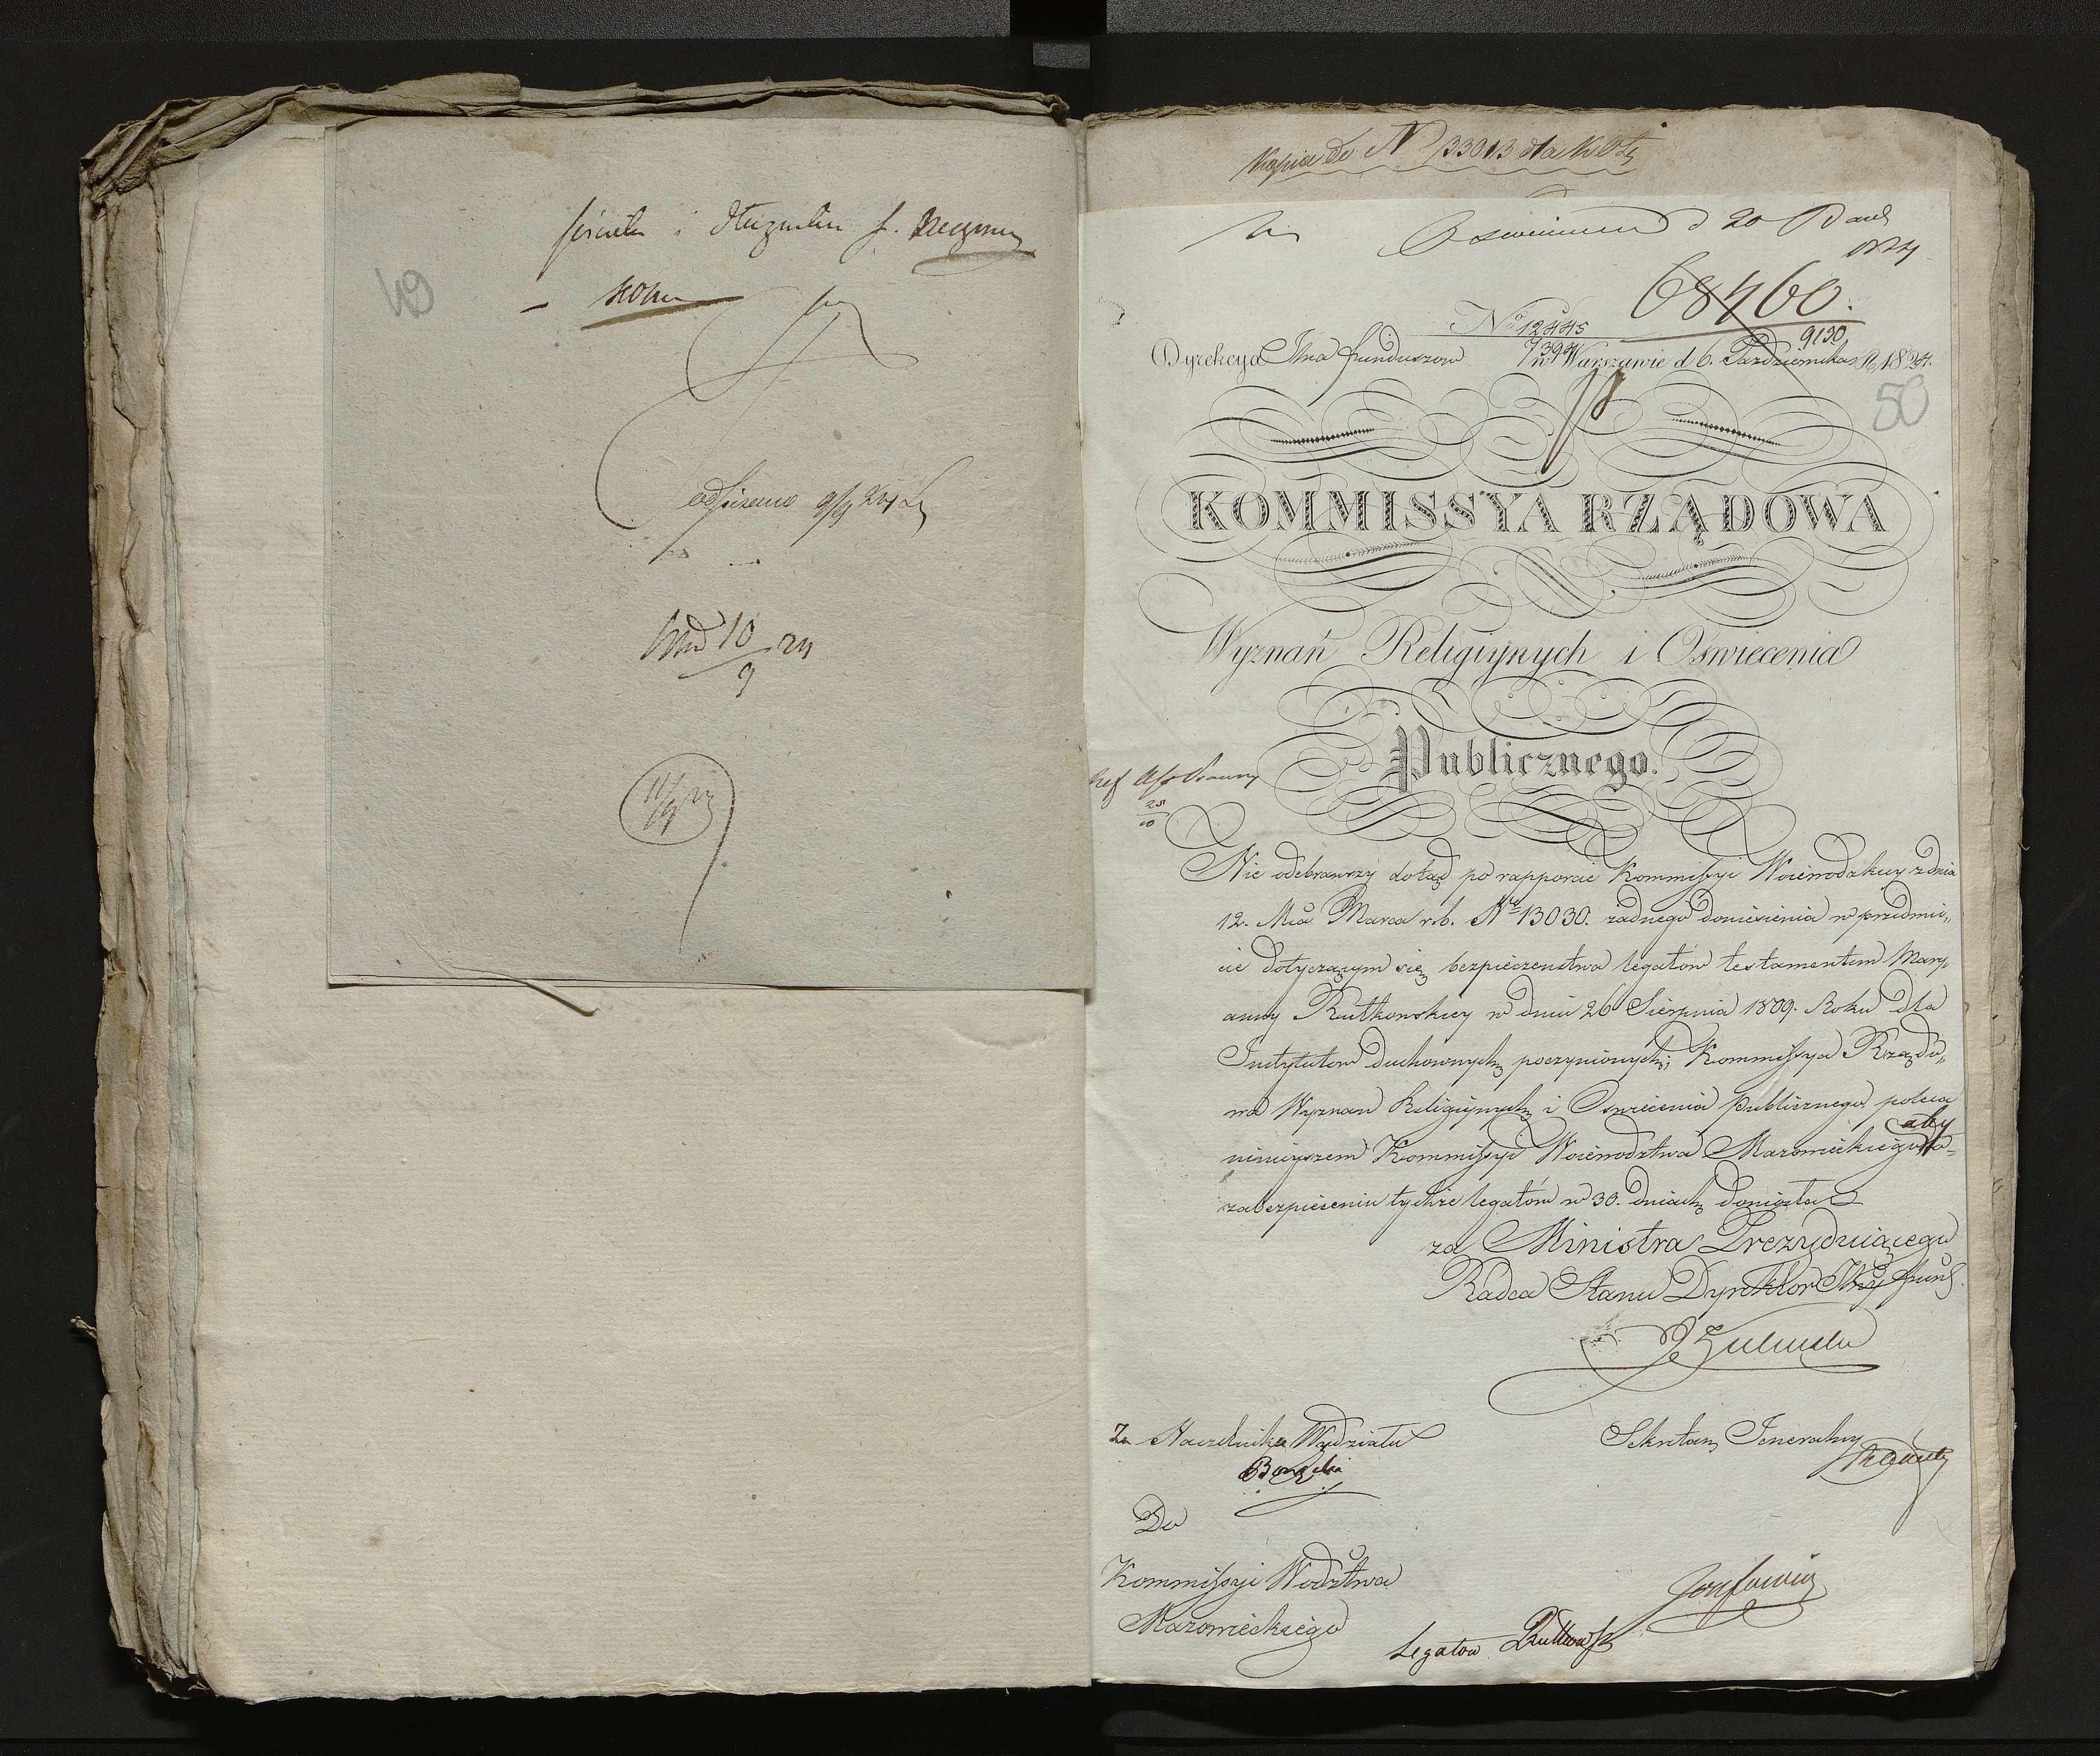 49
odpisano
10/9 24
Kopia do N 33013 dla
Oswiecenia d 20 Paźd
1824
68460.
No 12445
7394
9130
Dyrekcya Jlna funduszow w Warszawie d 6. Pazdziernika R. 1824.
50
KOMMISSYA RZĄDOWA
Wyznań Religiynych i Oswiecenia
Publicznego.
Nie odebrawszy dotąd po rapporcie Kommissyi Woiewodzkiey z dnia
12. Mca Marca r.b. No 13030. żadnego doniesienia w przedmio„
cie dotyczącym się bezpieczenstwa legatów testamentem Mary„
anny Rutkowskiey w dniu 26 Sierpnia 1809. Roku dla
Instytutow duchownych poczynionych; Kommissya Rządo„
wa Wyznań Religiynych i Oswiecenia Publicznego, poleca
ninieyszem Kommissyi Woiewodztwa Mazowieckiego aby o
zabezpieczeniu tychże legatów w 30. dniach doniosła
za Ministra Prezyduiącego
Radca Stanu Dyrektor Jlny fund.
Za Naczelnika Wydziału
Sekretarz Jeneralny
Do
Kommissyi Wodztwa
Mazowieckiego
Legatow Rutkowsk